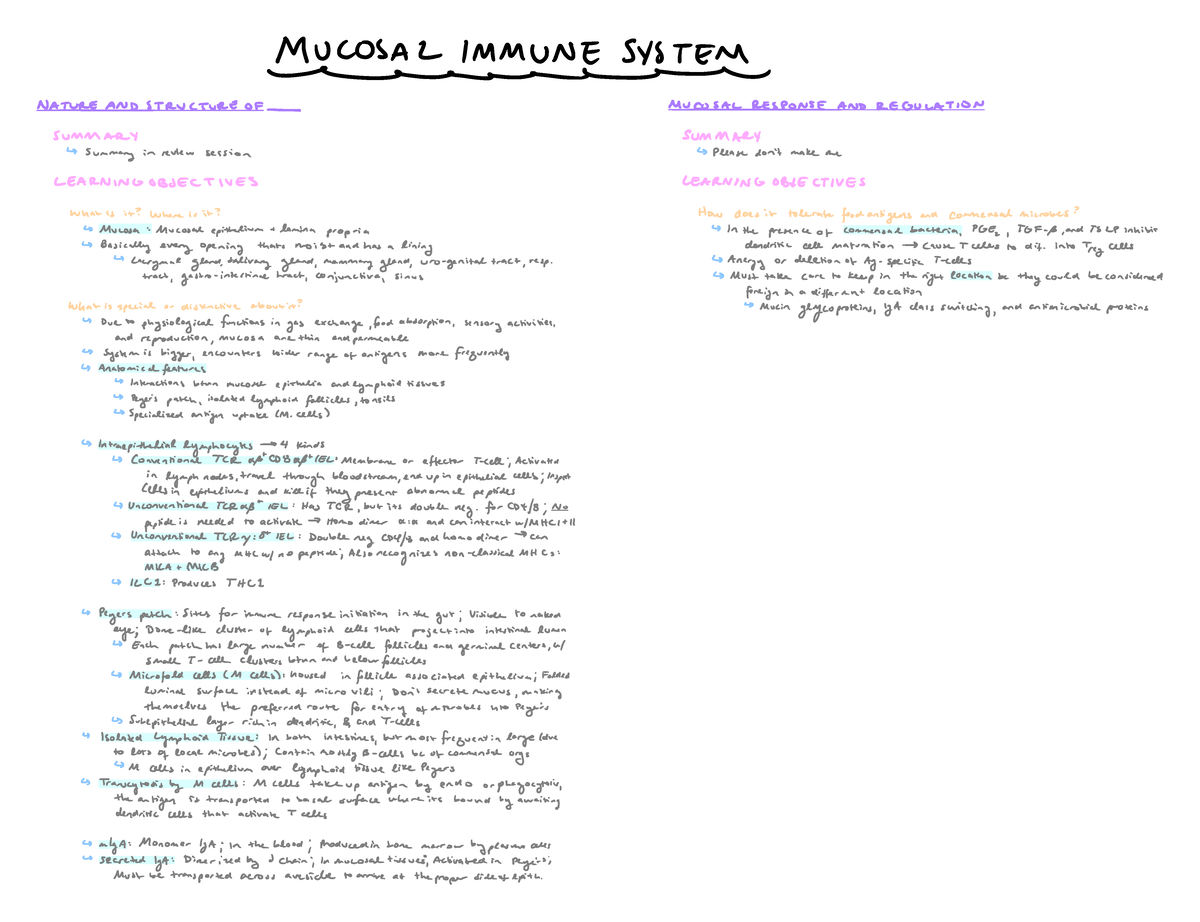 MUCOSAL IMMUNE SYSTEM
NATURE AND STRUCTURE OF ____
SUMMARY
↳ Summary in review session
LEARNING OBJECTIVES
What is it? Where is it?
↳ Mucosa: Mucosal epithelium + lamina propria
↳ Basically every opening thats moist and has a lining
↳ Lacrymal gland, salivary gland, mammary gland, uro-genital tract, resp.
tract, gastro-intestine tract, conjunctiva, sinus
What is special or distinctive about it?
↳ Due to physiological functions in gas exchange, food absorption, sensory activities,
and reproduction, mucosa are thin and permeable
↳ System is bigger, encounters wider range of antigens more frequently
↳ Anatomical features
↳ Interactions btwn mucosal epithelia and lymphoid tissues
↳ Peyer's patch, isolated lymphoid follicles, tonsils
↳ Specialized antigen uptake (M. cells)
↳ Intraepithelial lymphocytes → 4 kinds
↳ Conventional TCR αβ⁺ CD8αβ⁺ IEL: Membrane or effector T-cell; Activated
in lymph nodes, travel through bloodstream, end up in epithelial cells; Inspect
cells in epitheliums and kill if they present abnormal peptides
↳ Unconventional TCRαβ⁺ IEL: Has TCR, but its double neg. for CD4/8; No
peptide is needed to activate → Homo dimer αα and can interact w/MHC I+II
↳ Unconventional TCRγ:δ⁺ IEL: Double neg CD4/8 and homo dimer → can
attach to any MHC w/ no peptide; Also recognizes non-classical MHCs:
MICA + MICB
↳ ILC1: Produces THC1
↳ Peyers patch: Sites for immune response initiation in the gut; Visible to naked
eye; Dome-like cluster of lymphoid cells that project into intestinal lumen
↳ Each patch has large number of B-cell follicles and germinal centers, w/
small T-cell clusters btwn and below follicles
↳ Microfold cells (M cells): Housed in follicle associated epithelium; Folded
luminal surface instead of micro villi; Don't secrete mucus, making
themselves the preferred route for entry of microbes into Peyer's
↳ Subepithelial layer rich in dendritic, B, and T-cells
↳ Isolated Lymphoid Tissue: In both intestines, but most frequent in large (due
to lots of local microbes); Contain mostly B-cells bc of commensal orgs
↳ M cells in epithelium over lymphoid tissue like Peyers
↳ Transcytosis by M cells: M cells take up antigen by endo or phagocytosis,
the antigen is transported to basal surface where its bound by awaiting
dendritic cells that activate T cells
↳ mIgA: Monomer IgA; In the blood; Produced in bone marrow by plasma cells
↳ secreted IgA: Dimerized by J chain; In mucosal tissues; Activated in Peyer's;
Must be transported across a vesicle to arrive at the proper side of epith.
MUCOSAL RESPONSE AND REGULATION
SUMMARY
↳ Please don't make me
LEARNING OBJECTIVES
How does it tolerate food antigens and commensal microbes?
↳ In the presence of commensal bacteria, PGE₂, TGF-β, and TSLP inhibit
dendritic cell maturation → Cause T cells to dif. into Treg cells
↳ Anergy or deletion of Ag-specific T-cells
↳ Must take care to keep in the right location bc they could be considered
foreign in a different location
↳ Mucin glycoproteins, IgA class switching, and antimicrobial proteins